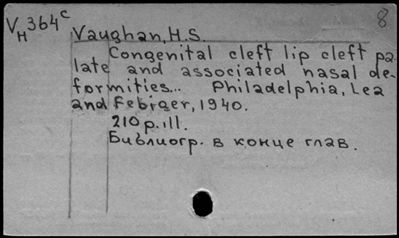 VH364c 8
Vaughan, H.S.
Congenital cleft lip cleft pa-
late and associated nasal de-
formities... Philadelphia, Lea
and Febiger, 1940.
210 p. ill.
Библиогр. в конце глав.